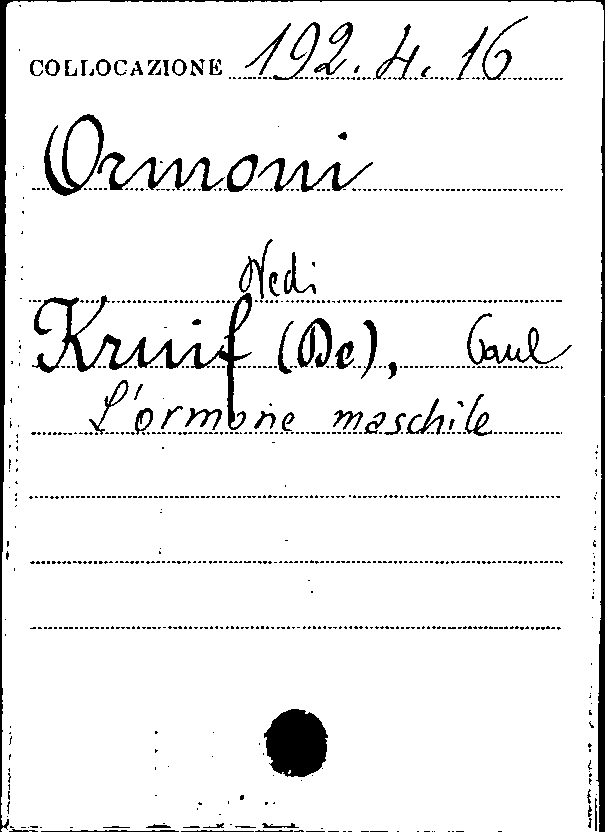 COLLOCAZIONE 192.4.16
Ormoni
Vedi
Kruif (De), Paul
L'ormone maschile